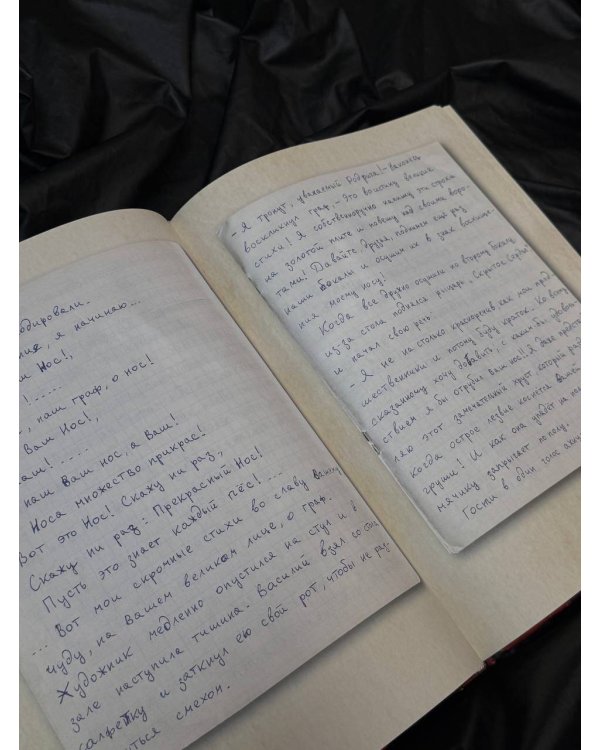 одировали.
ние, я начинаю...
м Нос!,
! .....
, наш граф, о нос!
Ваш Нос!,
аш! .....
наш Ваш нос, а Ваш!
Носа множество прикрас!
Вот это Нос! Скажу ни раз,
Скажу ни раз: Прекрасный Нос!
Пусть это знает каждый пёс! ...
... Вот мои скромные стихи во славу Вашему
чуду, на Вашем великом лице, о граф.
Художник медленно опустился на стул и в
зале наступила тишина. Василий взял со стола
салфетку и заткнул ею свой рот, чтобы не раз-
иться смехом.
- Я тронут, уважаемый Додрюа! - наконец
воскликнул граф, - Это воистину великие
стихи! Я собственноручно напишу эти строки
на золотой плите и повешу над своими воро-
тами! Давайте, друзья, поднимем ещё раз
наши бокалы и осушим их в знак восхище-
ния моему носу!
Когда все дружно осушили по второму бокалу,
из-за стола поднялся рыцарь, Скрыток Сердца
и начал свою речь.
- Я не на столько красноречив как мои пред-
шественники и потому буду краток. Ко всему
сказанному хочу добавить, с каким бы удоволь-
ствием я бы отрубил ваш нос!! Я даже представ-
ляю этот замечательный хруст который разд
Когда острое лезвие коснётся Вашей
груши! И как она упадёт на пол
мячику запрыгает по полу.
Гости в один голос ахну